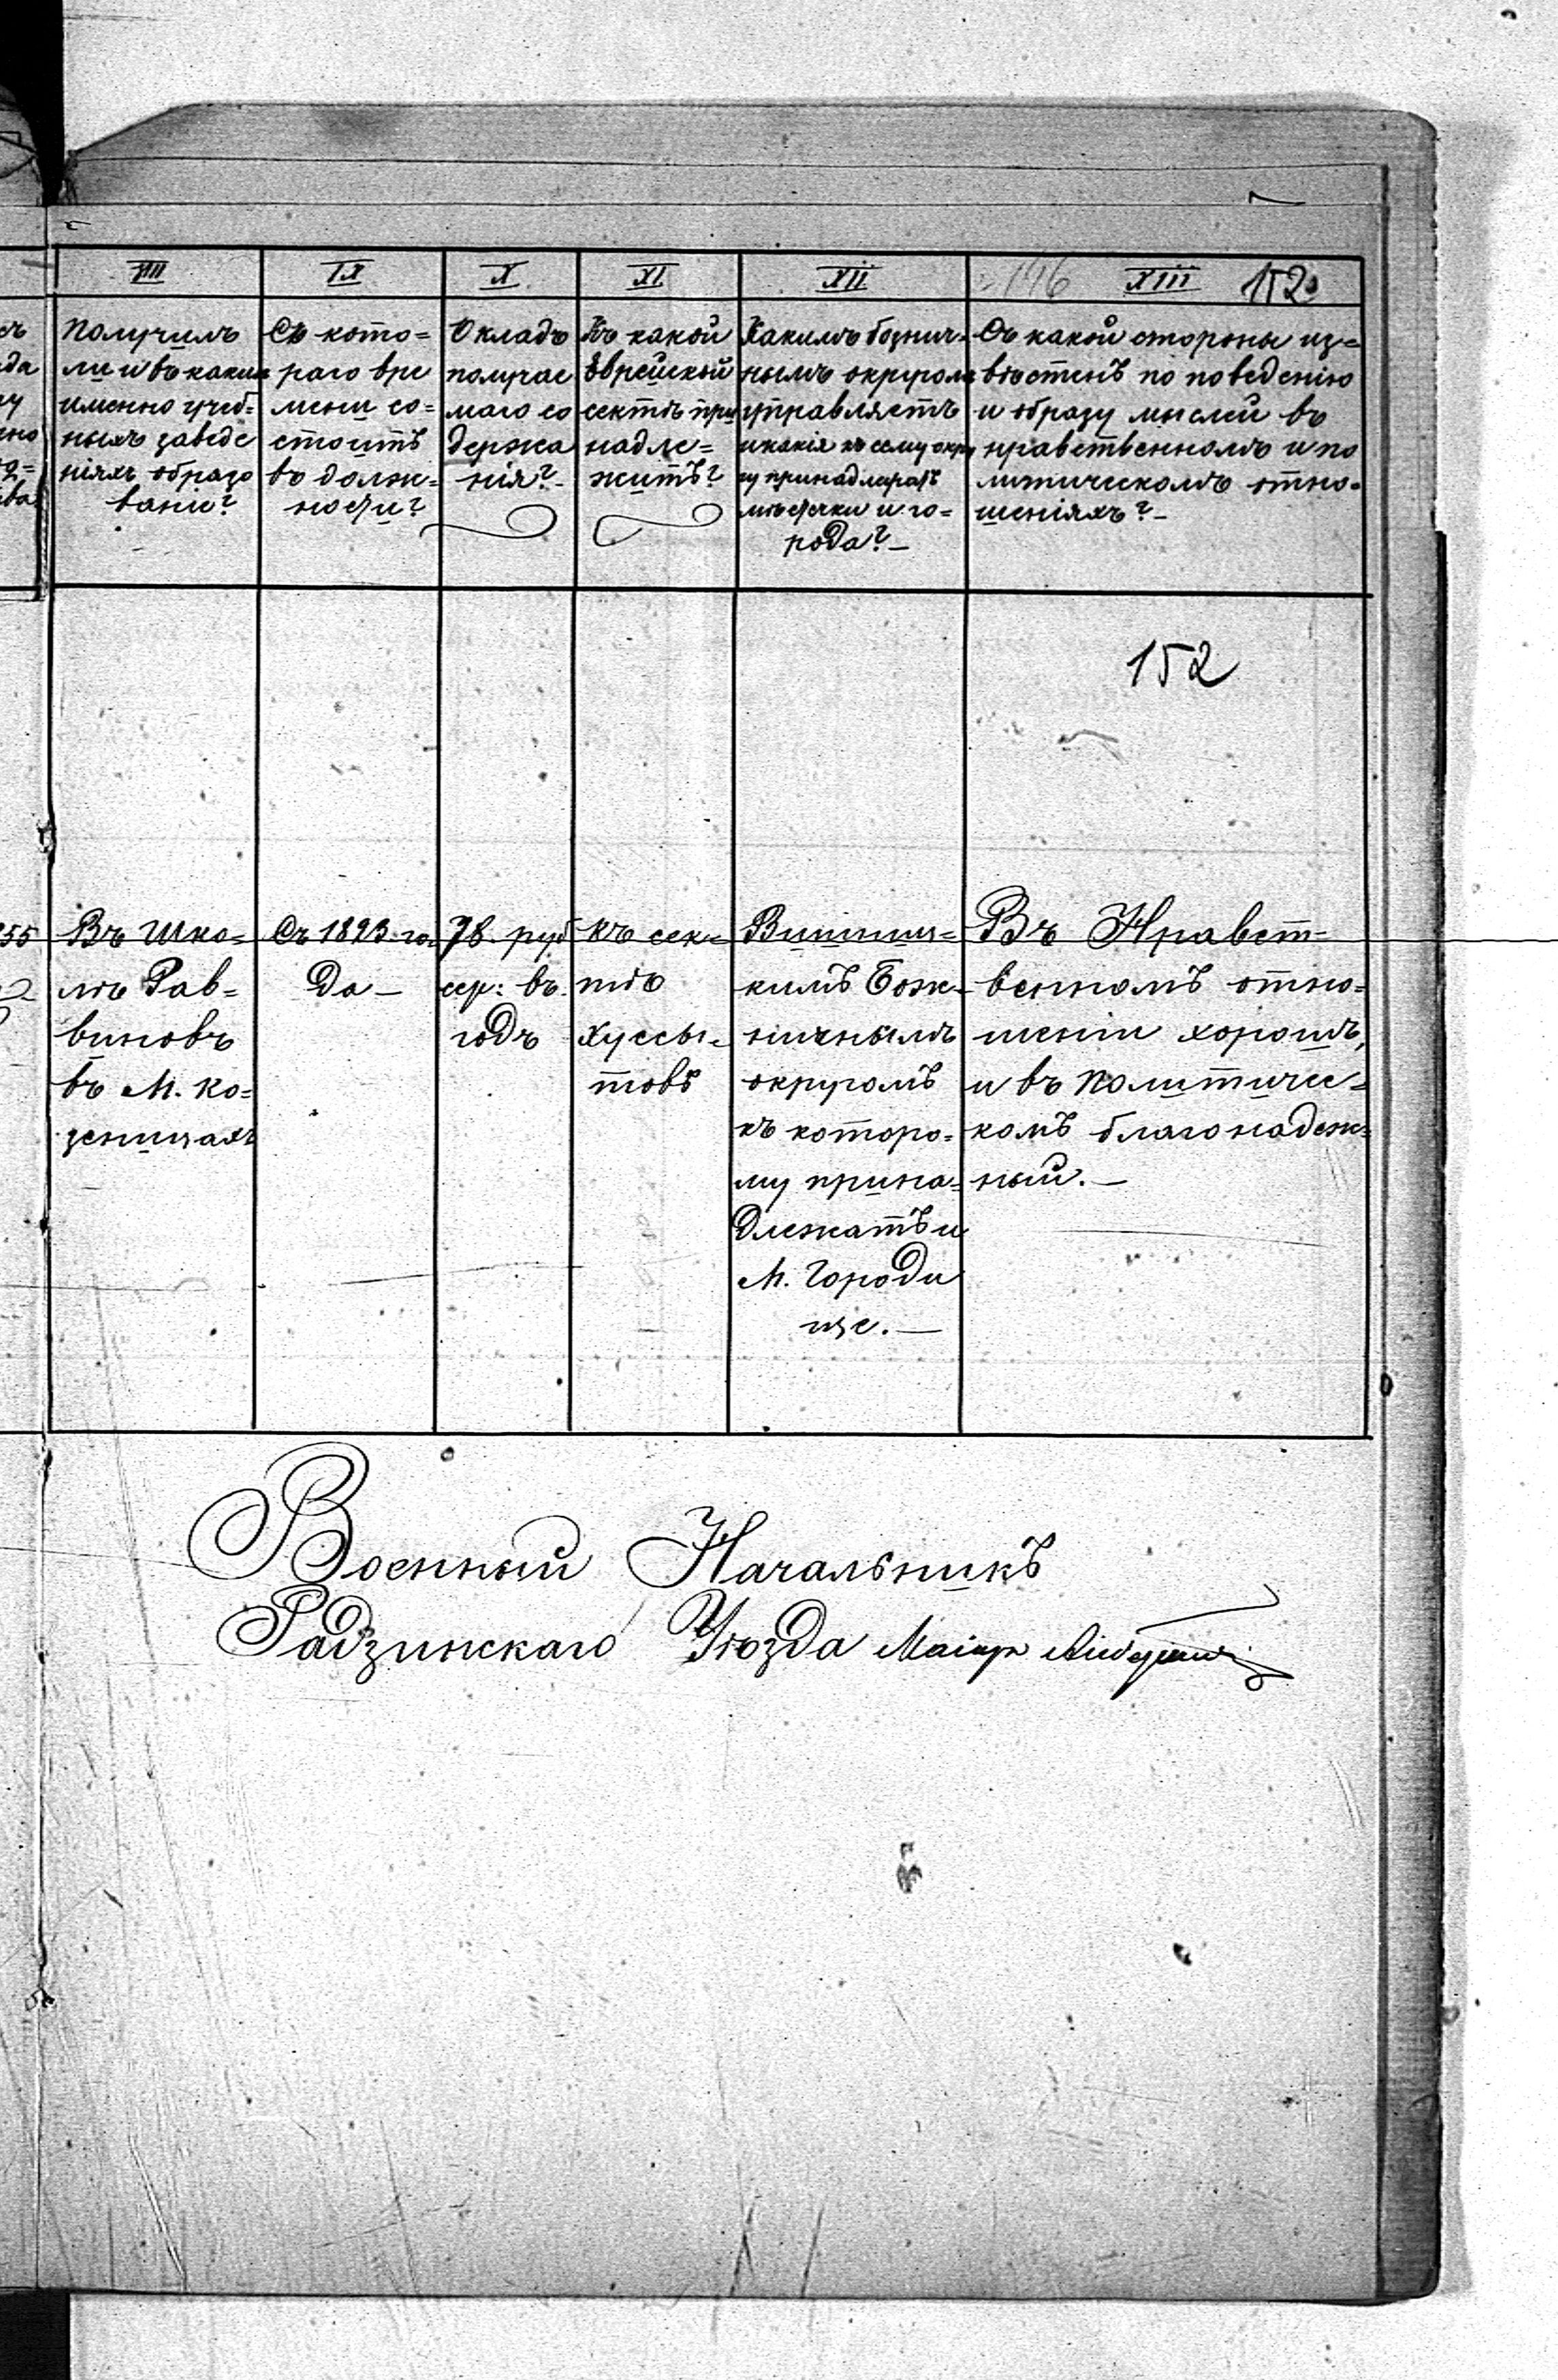 VIII
Получилъ
ли и въ какихъ
именно учеб=
ныхъ заведе
нiяхъ образо
ванiе?
IX
Съ кото=
раго вре
мени со=
стоитъ
въ долж=
ности?
X
Окладъ
получае
маго со
держа
нiя?-
XI
Къ какой
Еврейской
сектѣ при
надле=
житъ?
XII
Какимъ божнич=
нымъ округомъ
управляетъ
и какiя къ сему окру
гу принадлежатъ
мѣстечки и го=
рода?-
146 XIII 152
Съ какой стороны из=
вѣстенъ по поведенiю
и образу мыслей въ
нравственномъ и по
литическомъ отно=
шенiяхъ?-
152
Въ Шко=
лѣ Рав=
виновъ
въ М. Ко=
зеницахъ
Съ 1823 го=
да-
78. руб
сер: въ
годъ
Къ сек=
тѣ
хуссы=
товъ
Вишниц=
кимъ Бож=
ничнымъ
округомъ
къ которо=
му прина=
длежатъ и
М. Городи
ще.-
Въ Нравст=
венномъ отно=
шенiи хорошъ,
и въ Политичес=
комъ благонадеж=
ный.-
Военный Начальникъ
Радзинскаго Уѣзда Маiоръ